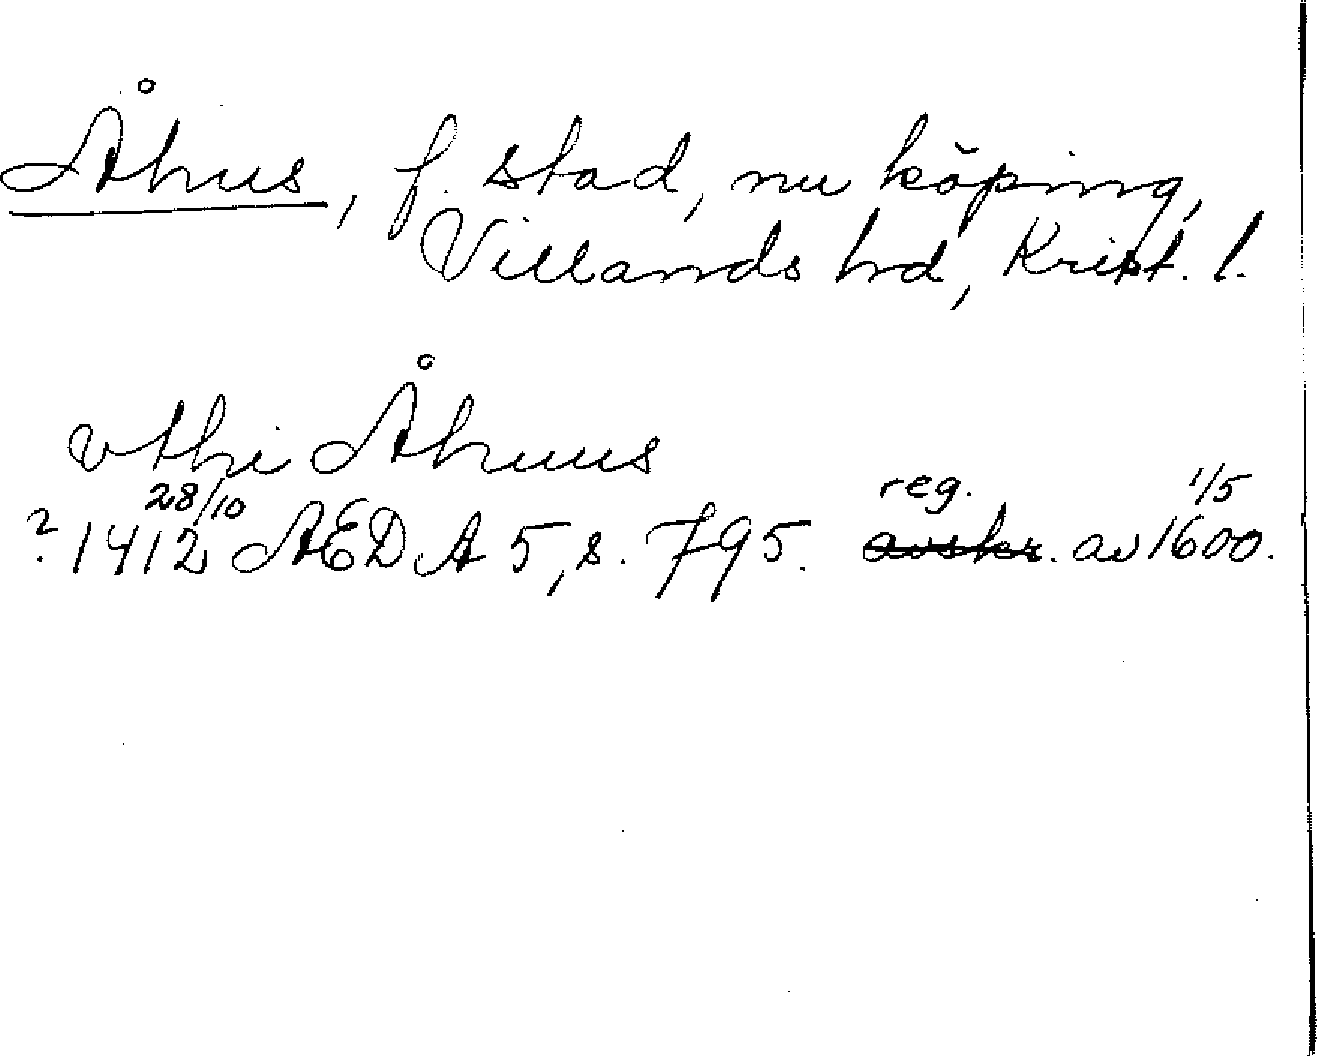 Åhus, f. stad, nu köping,
Villands hrd, Krist. l.
vthi Åhuus
28/10 reg. 1/5
? 1412 AED A 5, s. 795. avskr. av 1600.